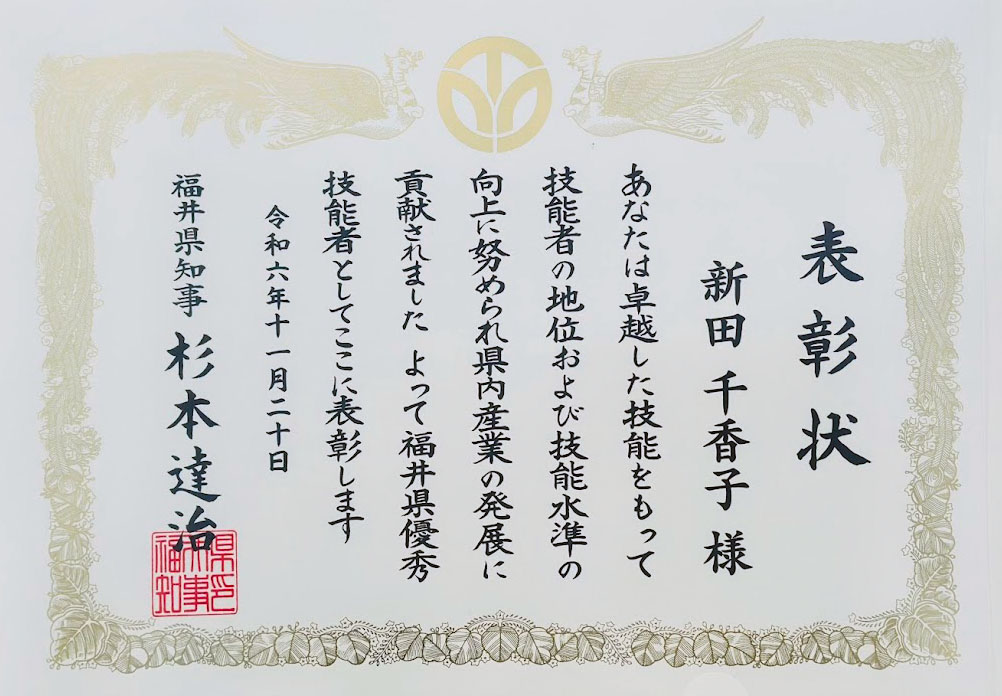 表彰状
新田 千香子 様
あなたは卓越した技能をもって
技能者の地位および技能水準の
向上に努められ県内産業の発展に
貢献されました よって福井県優秀
技能者としてここに表彰します
令和六年十一月二十日
福井県知事 杉本達治